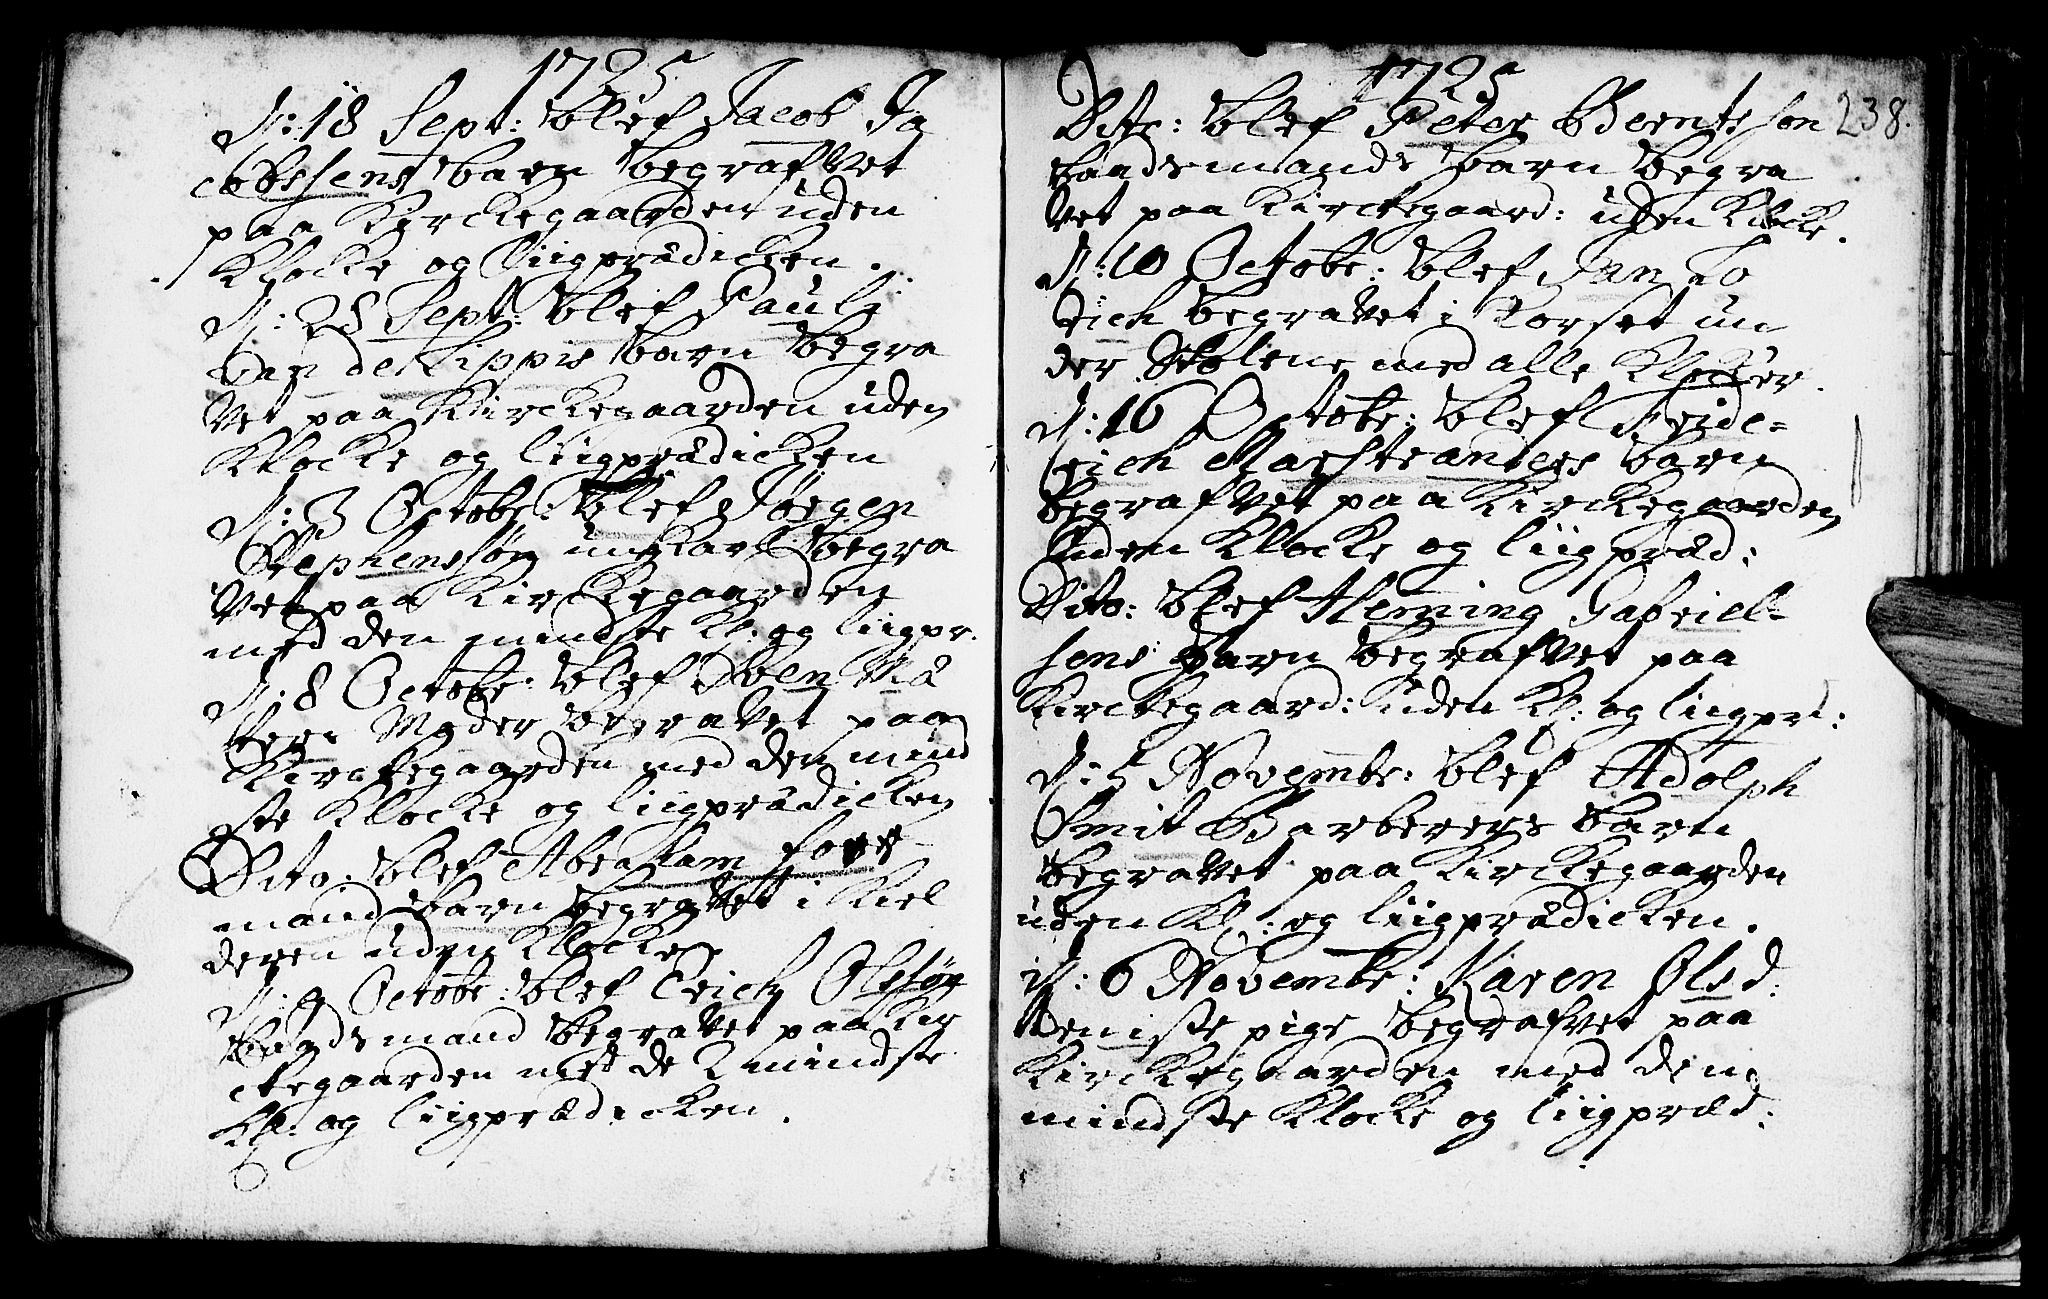 1725
D: 18 Sept: blef Jacob Ja
cobssens barn begrafvet
paa Kirckegaarden uden
Klocke og Liigprædicken.
D: 28 Sept: blef Pauly
van de Lippis barn begra
vet paa Kirckegaarden uden
Klocke og liigprædicken
D: 3 Octobr: blef Jørgen
Stephenssøn ungkarl begra
vet paa Kirckegaarden
med den mindste Kl: og liigpr.
D: 8 Octobr: blef Iven
Moder begravet paa
Kirckegaarden med den mind
ste Klocke og liigprædicken
Dito: blef Abraham
mand barn begravet i Kiel
deren uden Klocke
D: 9 Octobr: blef Erich Olssøn
baadsmand begravet paa Kir
ckegaarden med de 2 mindste
Kl: og liigprædicken.
1725
238.
Dito: blef Peter Berntsson
baadsmands barn begra
vet paa Kirckegaard: uden Klocke.
D: 10 Octobr: blef Jan Lo
rich begravet i Korset un
der Stolene med alle Klocker.
D: 16 Octobr: blef Fride-
rich Marstranders barn
begrafvet paa Kirckegaarden
uden Klocke og liigpræd:
Dito: blef Heming Gabriel-
sens barn begrafvet paa
Kirckegaard: uden Kl: og liigpr:
D: 5 Novembr: blef Adolph
Smit Barberers barn
begravet paa Kirckegaarden
uden Kl: og liigprædicken.
D: 6 Novembr: Karen Olsd:
pige begrafvet paa
Kirckegaarden med den
mindste Klocke og liigpræd: